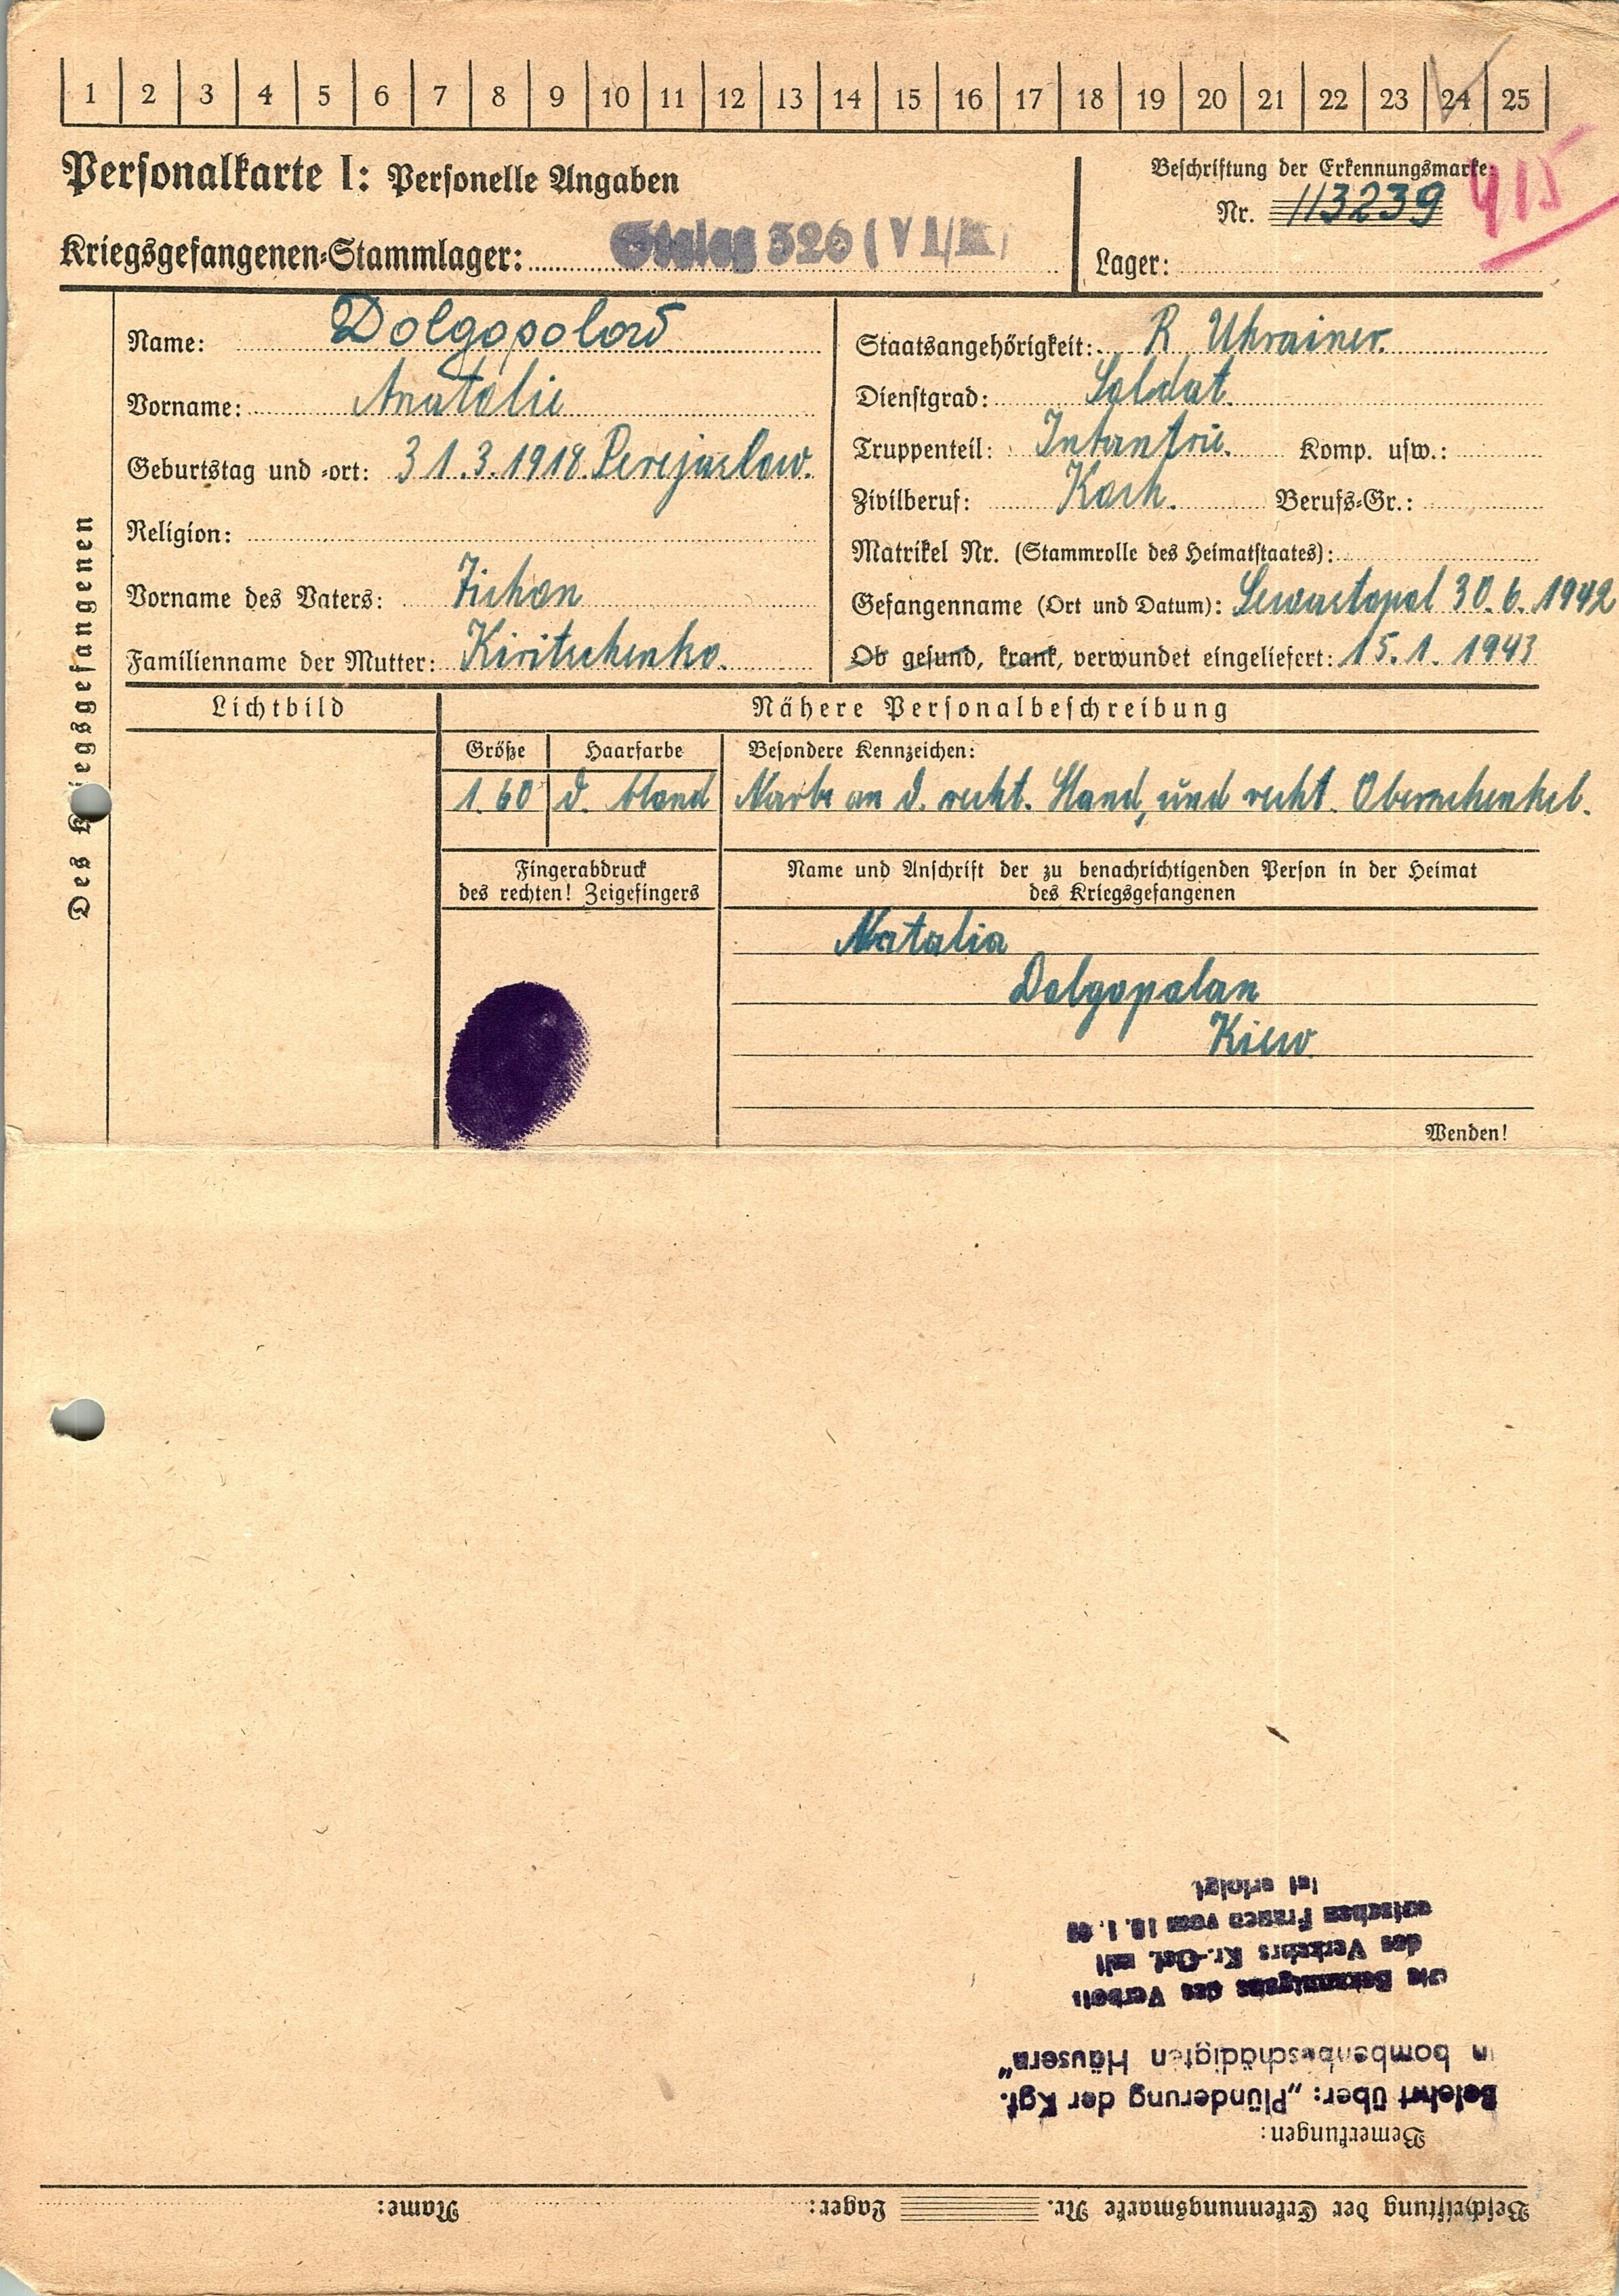 1 2 3 4 5 6 7 8 9 10 11 12 13 14 15 16 17 18 19 20 21 22 23 24 25
Personalkarte I: Personelle Angaben
Beschriftung der Erkennungsmarke:
Nr. 113239 415
Kriegsgefangenen=Stammlager: Stalag 326 (VI/K)
Lager:
Des Kriegsgefangenen
Name: Dolgopolow
Vorname: Anatolie
Geburtstag und =ort: 31.3.1918. Perejaslow.
Religion:
Vorname des Vaters: Tichon
Familienname der Mutter: Kiritschenko.
Staatsangehörigkeit: R Ukrainer.
Dienstgrad: Soldat.
Truppenteil: Infantrie. Komp. usw.:
Zivilberuf: Koch. Berufs=Gr.:
Matrikel Nr. (Stammrolle des Heimatstaates):
Gefangenname (Ort und Datum): Sewastopol 30.6.1942
Ob gesund, krank, verwundet eingeliefert: 15.1.1943
Lichtbild
Nähere Personalbeschreibung
Größe Haarfarbe Besondere Kennzeichen:
1.60 d. blond Narbe an d. recht. Hand, und recht. Oberschenkel.
Fingerabdruck
des rechten! Zeigefingers
Name und Anschrift der zu benachrichtigenden Person in der Heimat
des Kriegsgefangenen
Natalia
Dolgopolan
Kiew
Wenden!
Beschriftung der Erkennungsmarke Nr. Lager: Name:
Bemerkungen:
Belehrt über: „Plünderung der Kgf.
in bombenbeschädigten Häusern"
Die Bekanntgabe des Verbots
des Verkehrs Kr.-Gef. mit
deutschen Frauen vom
ist erfolgt.